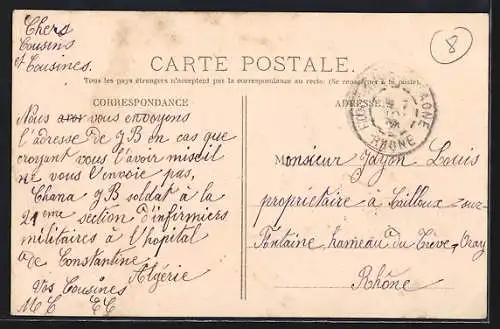 Chers
Cousins
et Cousines.
8
CARTE POSTALE.
Tous les pays étrangers n'acceptent pas la correspondance au recto. (Se renseigner à la poste).
CORRESPONDANCE
ADRESSE
RHÔNE
Nous vous envoyons
l'adresse de JB en cas que
croyant vous l'avoir mis dil
ne vous l'envoie pas,
Chana JB soldat à la
21eme section d'infirmiers
militaires à l'hôpital
de Constantine
Algérie
Vos Cousines
MC CC
Monsieur Jayon Louis
propriétaire à Cailloux-sur-
Fontaine, hameau du Trève-Oray
Rhône